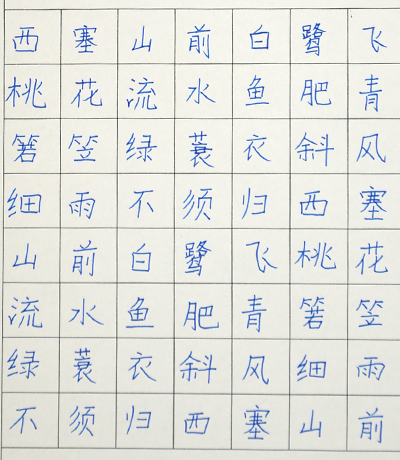 西塞山前白鹭飞
桃花流水鱼肥青
箬笠绿蓑衣斜风
细雨不须归西塞
山前白鹭飞桃花
流水鱼肥青箬笠
绿蓑衣斜风细雨
不须归西塞山前